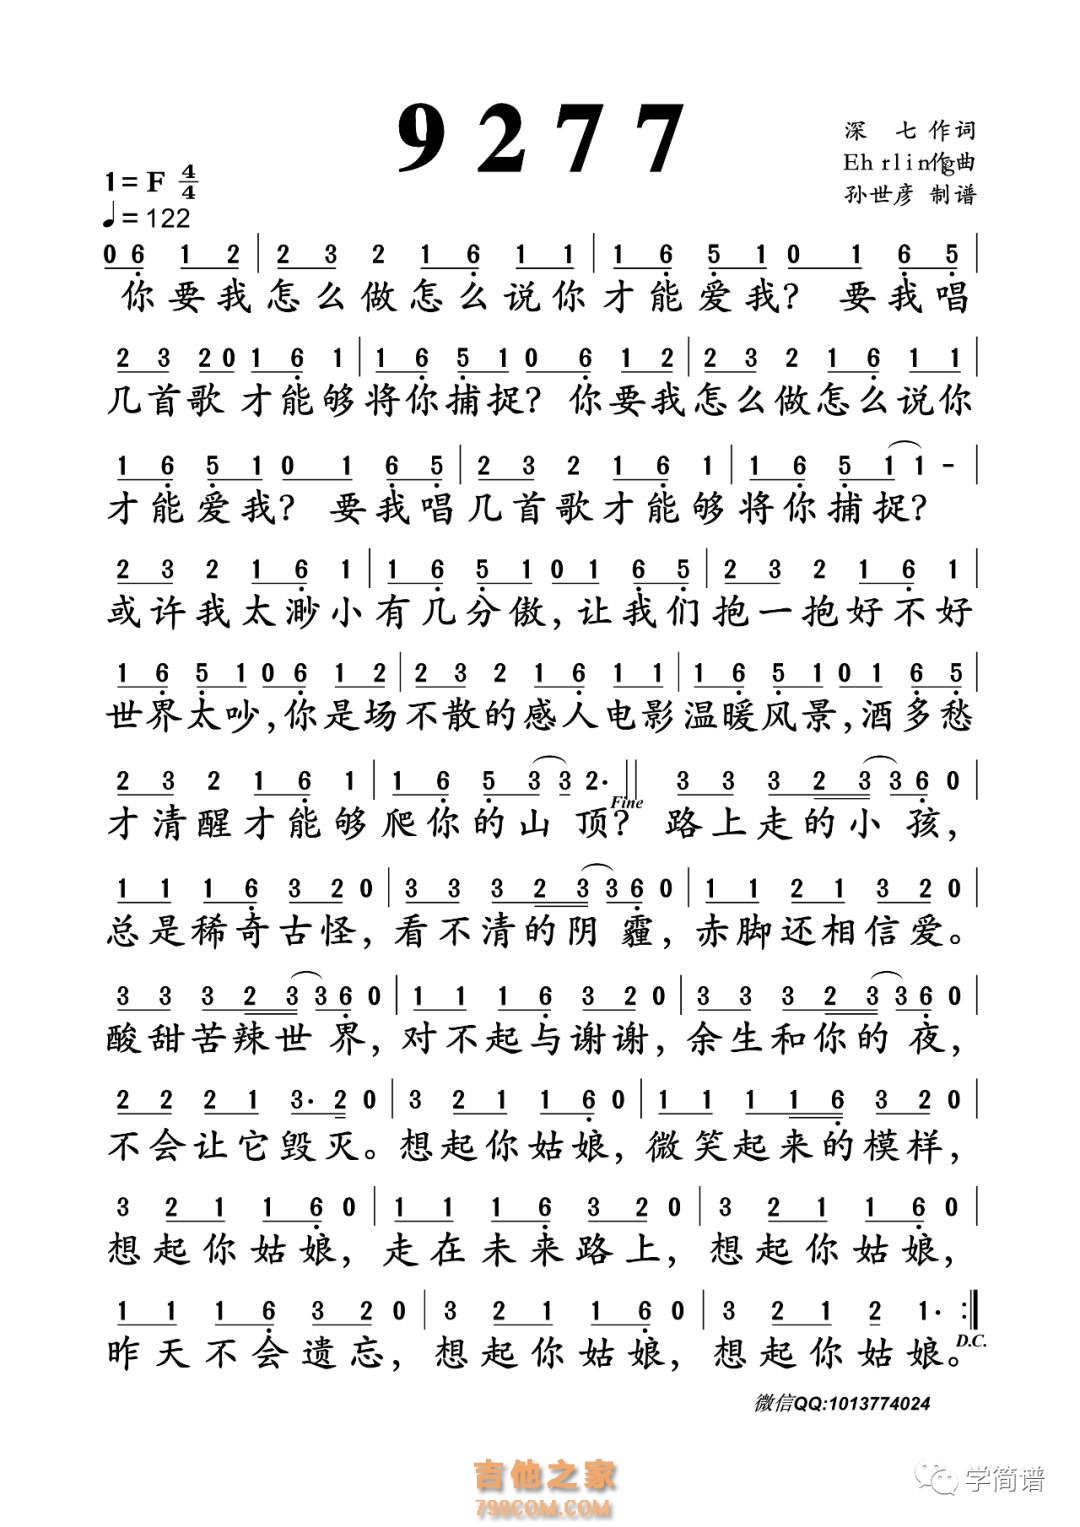 9277
深 七 作词
Ehrling作曲
孙世彦 制谱
1=F 4/4
♩=122
0 6 1 2 | 2 3 2 1 6 1 1 | 1 6 5 1 0 1 6 5 |
你要我怎么做怎么说你才能爱我? 要我唱
2 3 2 0 1 6 1 | 1 6 5 1 0 6 1 2 | 2 3 2 1 6 1 1 |
几首歌 才能够将你捕捉? 你要我怎么做怎么说你
1 6 5 1 0 1 6 5 | 2 3 2 1 6 1 | 1 6 5 1 1 - |
才能爱我? 要我唱几首歌才能够将你捕捉?
2 3 2 1 6 1 | 1 6 5 1 0 1 6 5 | 2 3 2 1 6 1 |
或许我太渺小有几分傲,让我们抱一抱好不好
1 6 5 1 0 6 1 2 | 2 3 2 1 6 1 1 | 1 6 5 1 0 1 6 5 |
世界太吵,你是场不散的感人电影温暖风景,酒多愁
2 3 2 1 6 1 | 1 6 5 3 3 2· || 3 3 3 2 3 3 6 0 |
Fine
才清醒才能够爬你的山 顶? 路上走的小 孩,
1 1 1 6 3 2 0 | 3 3 3 2 3 3 6 0 | 1 1 2 1 3 2 0 |
总是稀奇古怪,看不清的阴 霾,赤脚还相信爱。
3 3 3 2 3 3 6 0 | 1 1 1 6 3 2 0 | 3 3 3 2 3 3 6 0 |
酸甜苦辣世 界,对不起与谢谢,余生和你的 夜,
2 2 2 1 3· 2 0 | 3 2 1 1 6 0 | 1 1 1 1 6 3 2 0 |
不会让它毁灭。想起你姑娘,微笑起来的模样,
3 2 1 1 6 0 | 1 1 1 6 3 2 0 | 3 2 1 1 6 0 |
想起你姑娘,走在未来路上,想起你姑娘,
1 1 1 6 3 2 0 | 3 2 1 1 6 0 | 3 2 1 2 1· :||
D.C.
昨天不会遗忘,想起你姑娘,想起你姑娘。
微信QQ:1013774024
吉他之家
798COM.COM
学简谱